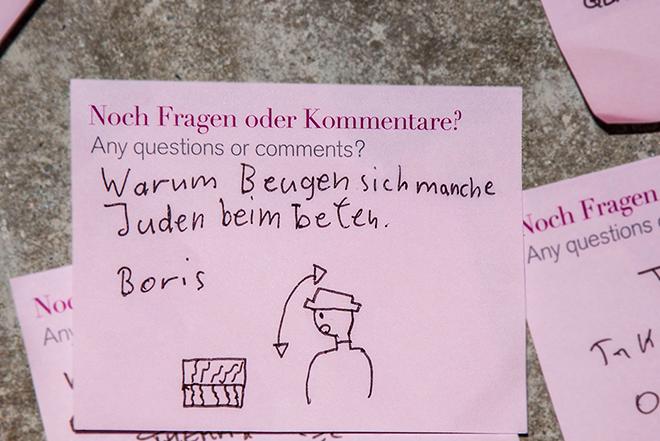 Noch Fragen oder Kommentare?
Any questions or comments?
Warum Beugen sich manche
Juden beim beten.
Boris
Noch Fragen
Any questions
Noc
An